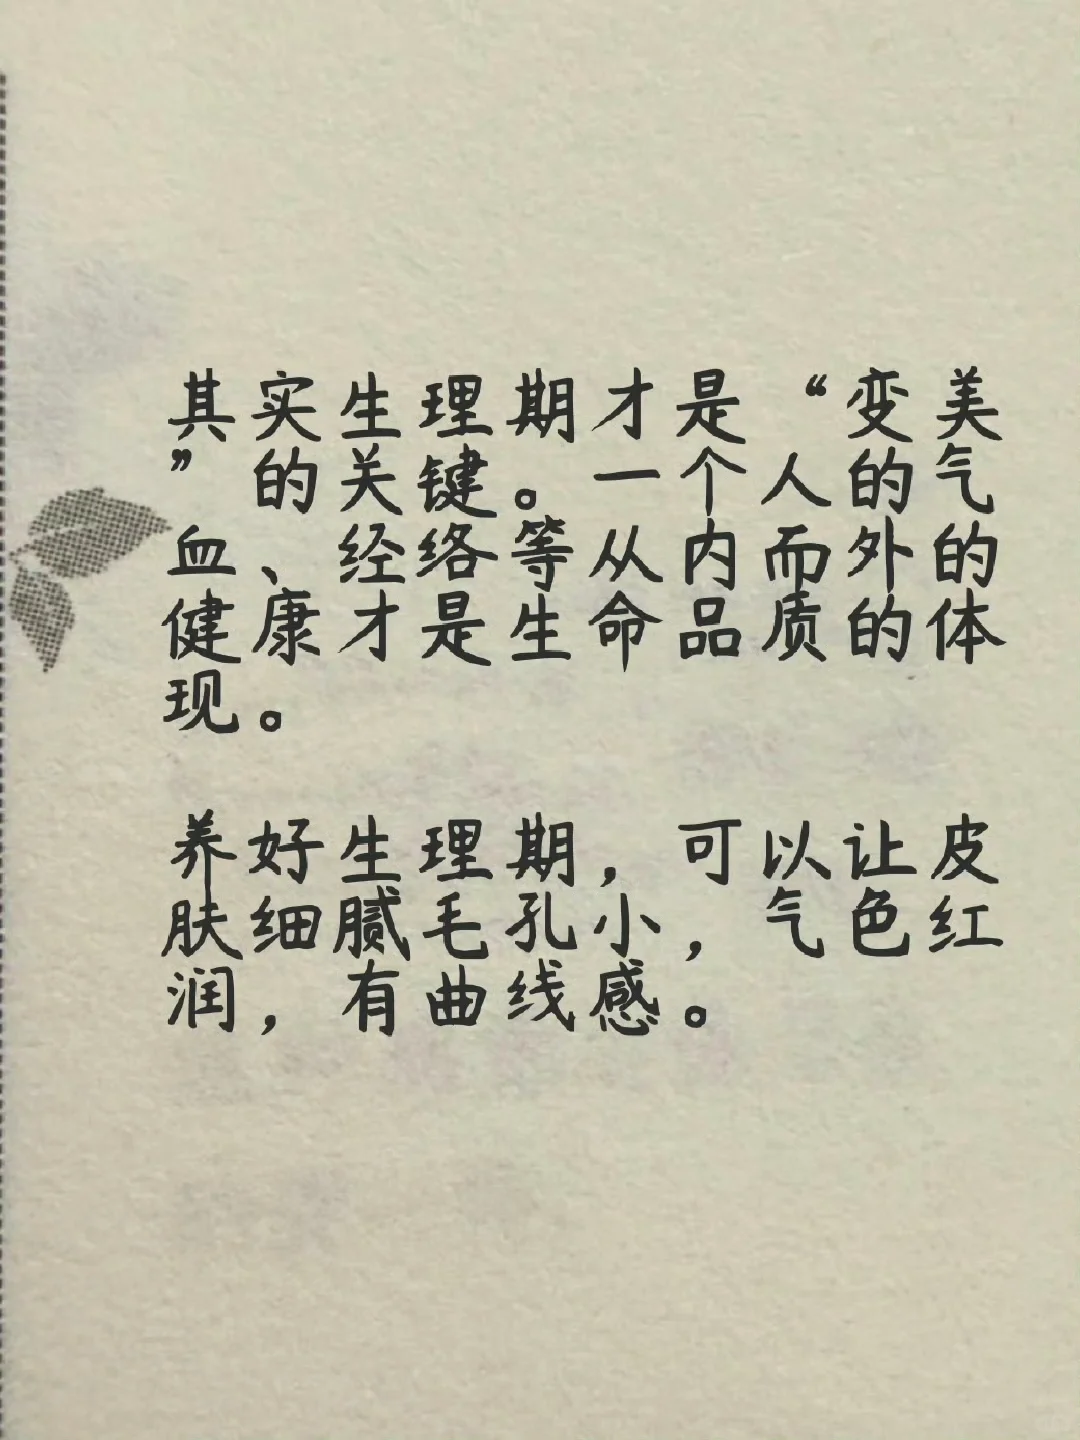 其实生理期才是“变美
”的关键。一个人的气
血、经络等从内而外的
健康才是生命品质的体
现。
养好生理期，可以让皮
肤细腻毛孔小，气色红
润，有曲线感。